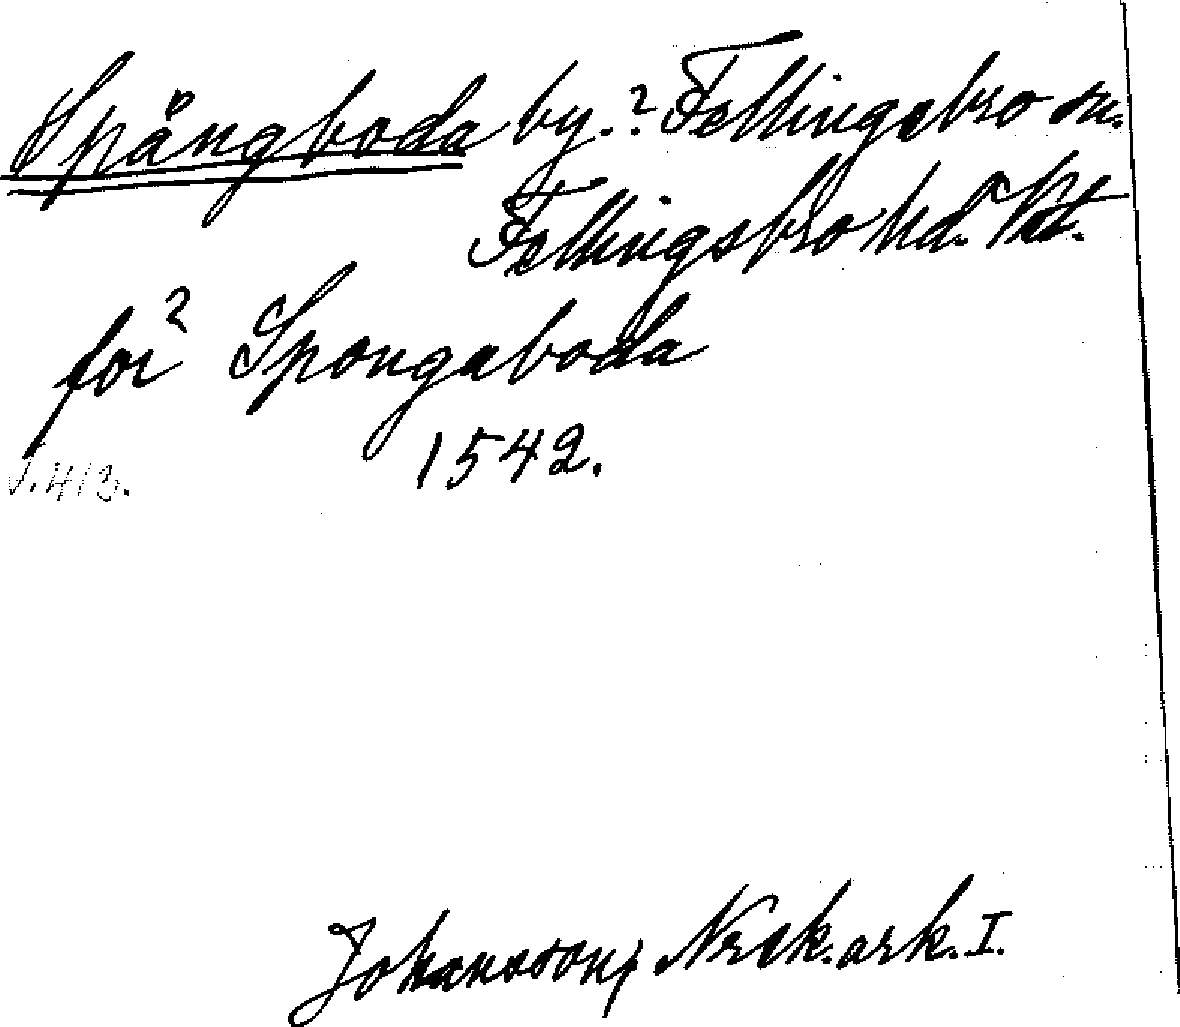 Spångboda by.? Fellingsbro sn.
Fellingsbro hd. Vstm.
for? Spongaboda
1542.
s. 413.
Johansson, Norsk. ark. I.